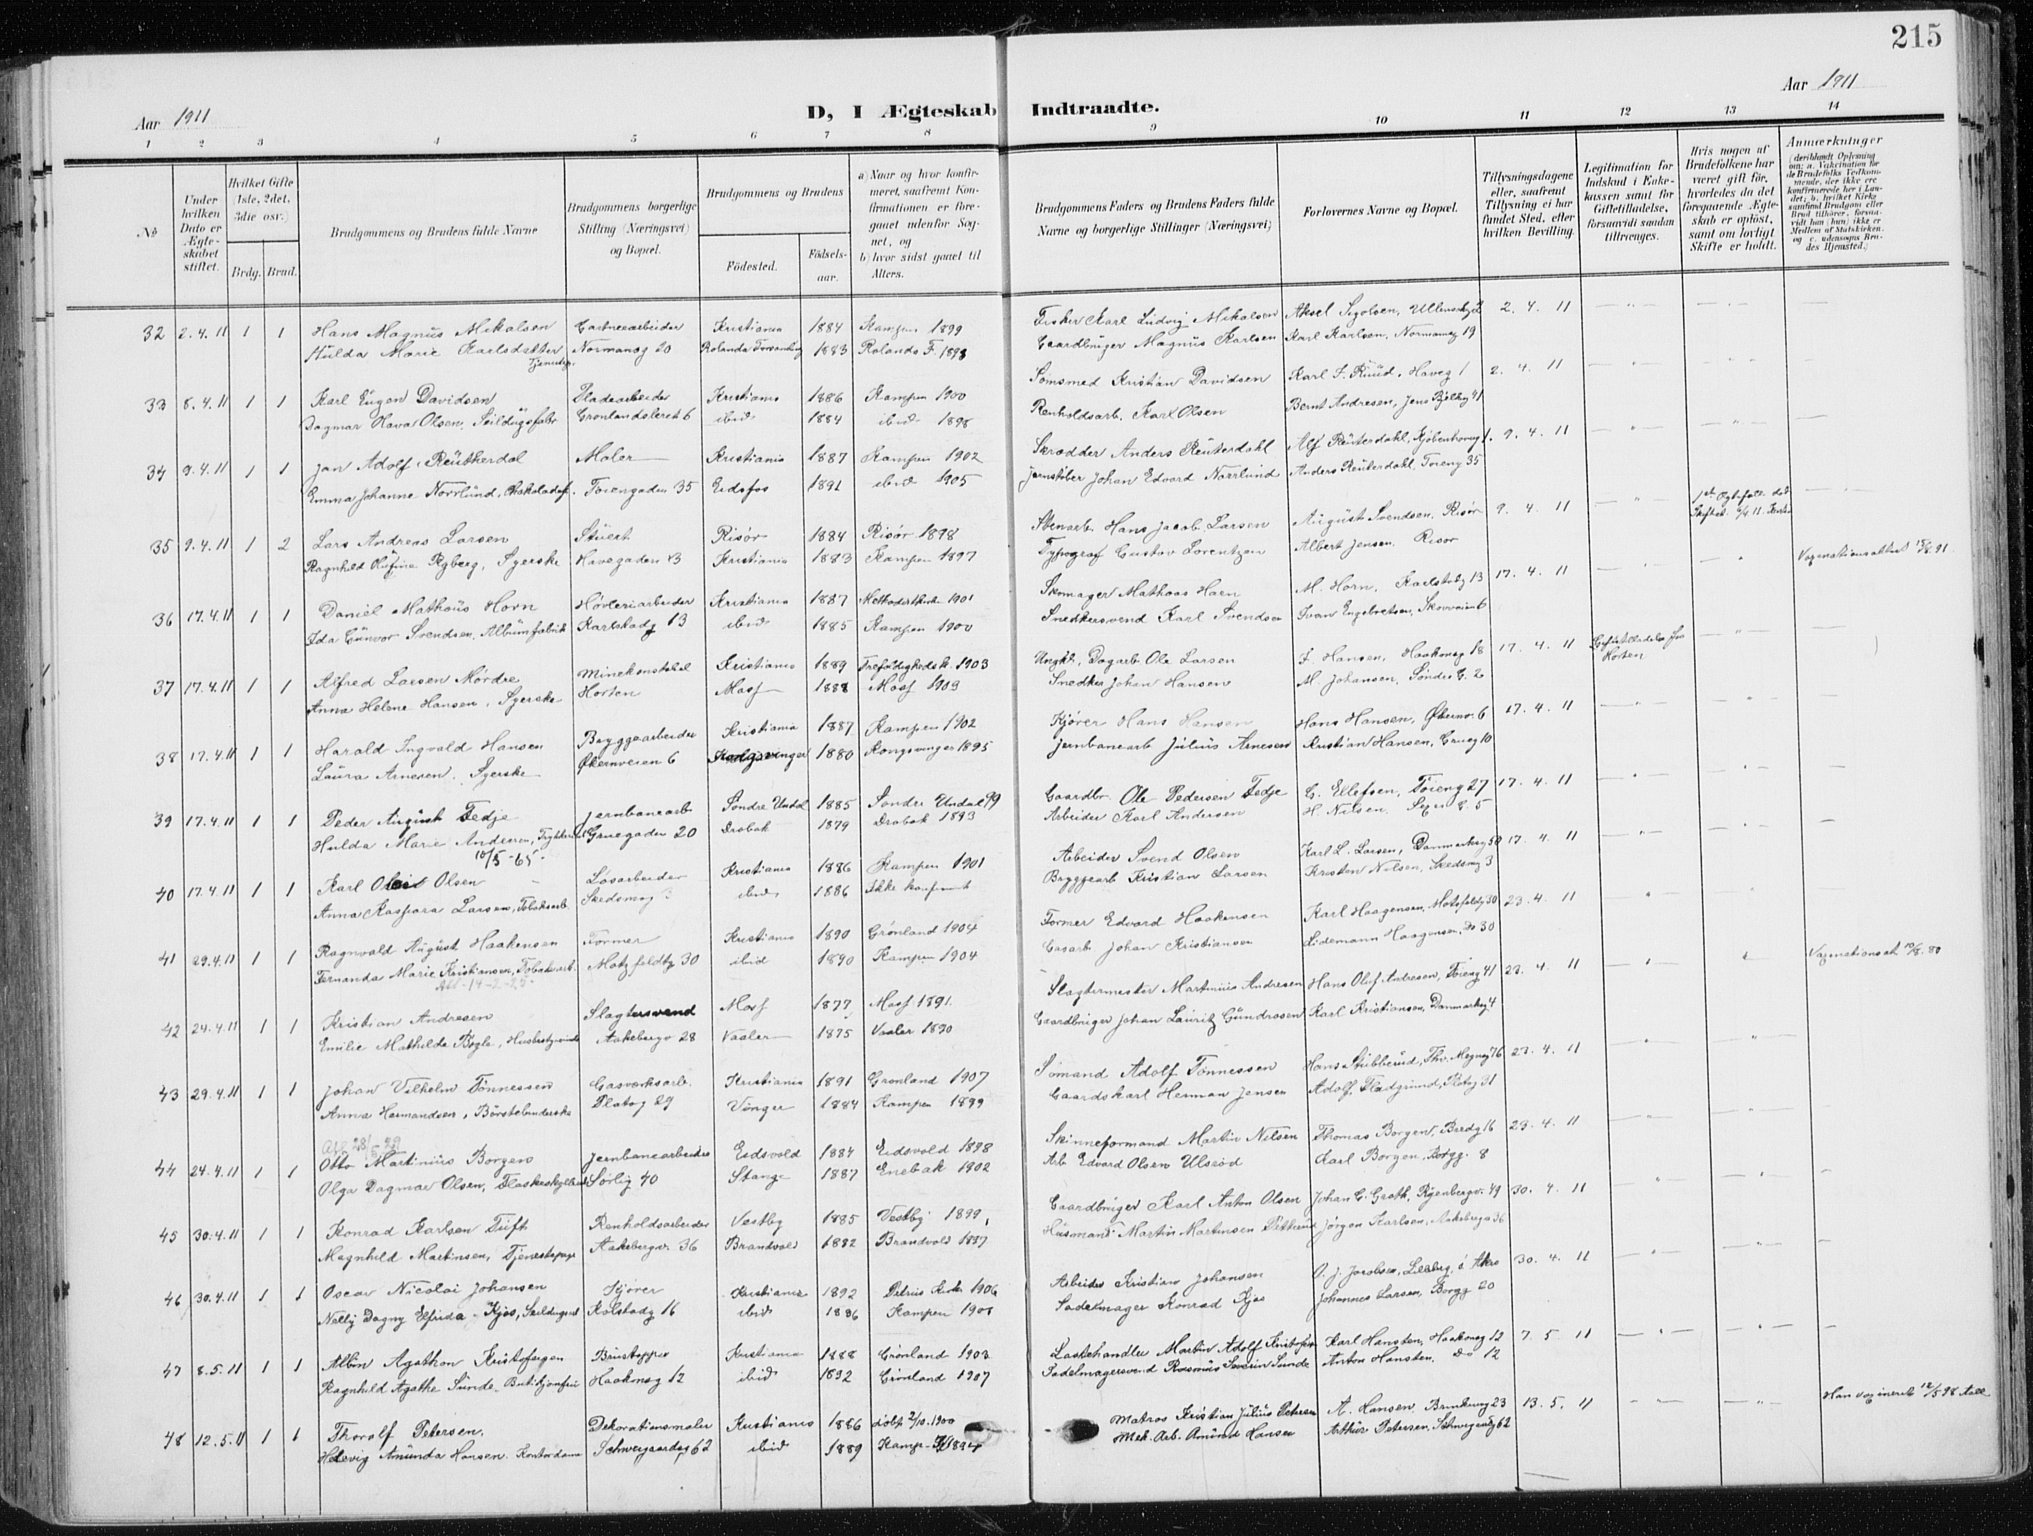 215
Aar 1911
D, I Ægteskab Indtraadte.
Aar 1911
1 2 3 4 5 6 7 8 9 10 11 12 13 14
No
Under hvilken Dato er Ægteskabet stiftet.
Hvilket Gifte (1ste, 2det, 3die osv.)
Brdg. Brud.
Brudgommens og Brudens fulde Navne
Brudgommens borgerlige Stilling (Næringsvei) og Bopæl.
Brudgommens og Brudens
Fødested.
Fødselsaar.
a) Naar og hvor konfirmeret, saafremt Konfirmationen er foregaaet udenfor Sognet, og
b) hvor sidst gaaet til Alters.
Brudgommens Faders og Brudens Faders fulde Navne og borgerlige Stillinger (Næringsvei)
Forlovernes Navne og Bopæl.
Tillysningsdagene eller, saafremt Tillysning ei har fundet Sted, efter hvilken Bevilling.
Legitimation for Indskud i Enkekassen samt for Giftetilladelse, forsaavidt saadan tiltrænges.
Hvis nogen af Brudefolkene har været gift før, hvorledes da det foregaaende Ægteskab er opløst, samt om lovligt Skifte er holdt.
Anmærkninger
(deriblandt Oplysning om: a. Vakcination for de Brudefolks Vedkommende, der ikke ere konfirmerede her i Landet; b. hvilket Kirkesamfund Brudgom eller Brud tilhører, forsaavidt han (hun) ikke er Medlem af Statskirken, og c. udensogns Brudes Hjemsted.)
32 2.4.11 1 1 Hans Magnus Mikalsen Gartnerarbeider Kristiania 1884 Kampen 1899 Fisker Karl Ludvig Mikalsen Aksel Sigolsen, 2.4.11
Hulda Marie Karlsdatter Normansg 20 1883 1898 Gaardbruger Magnus Karlsen Karl Karlsen, Normansg 19
33 8.4.11 1 1 Karl Eugen Davidsen Pladearbeider Kristiania 1886 Kampen 1900 Kristian Davidsen Karl F. Ruud, Haveg 1 2.4.11
Dagmar Olsen, Grønlandsleret 6 ibid 1884 ibid 1898 Renholdsarb. Karl Olsen Bernt Andresen, Jens Bjelkeg 41
34 9.4.11 1 1 Jan Adolf Reutherdal Maler Kristiania 1887 Kampen 1902 Skrædder Anders Reuterdahl Alf Reuterdahl, 9.4.11
Emma Johanne Norrlund, Tøiengaden 35 Eidsfos 1891 ibid 1905 Jernstøber Johan Edvard Norrlund Anders Reuterdahl, Tøieng 35
35 9.4.11 1 2 Lars Andreas Larsen Stuert Risør 1884 Risør 1898 Stenarb. Hans Jacob Larsen August Svendsen, Risør 9.4.11
Ragnhild Rygberg, Syerske Havegaden 13 Kristiania 1883 Kampen 1897 Typograf Gustav Lorentzen Albert Jensen, Risør
36 17.4.11 1 1 Daniel Mathæus Horn Høvleriarbeider Kristiania 1887 Methodistkirk. 1901 Skomager Mathæas Horn M. Horn, Karlstadg 13 17.4.11
Ida Gunvor Svendsen, Albumfabrik Karlstadg 13 ibid 1885 Kampen 1900 Snedkersvend Karl Svendsen Ivar Engebretsen, Skovveien 6
37 17.4.11 1 1 Alfred Larsen Nordre Minekonstabel Kristiania 1889 Trefoldighedsk. 1903 Ungk., Dagarb. Ole Larsen F. Hansen, Haakonsg 18 17.4.11 Giftetilladelse fra Horten
Anna Helene Hansen, Syerske Horten Moss 1888 Moss 1903 Snedker Johan Hansen M. Johansen, Søndre G. 2
38 17.4.11 1 1 Harald Ingvald Hansen Bryggearbeider Kristiania 1887 Kampen 1902 Kjører Hans Hansen Hans Hansen, Økernv. 6 17.4.11
Laura Arnesen, Syerske Økernveien 6 Kongsvinger 1880 Kongsvinger 1895 Jernbanearb Julius Arnesen Kristian Hansen, Grueg 10
39 17.4.11 1 1 Peder August Fedje Jernbanearb Søndre Undal 1885 Søndre Undal 99 Gaardbr. Ole Pedersen Fedje G. Ellefsen, Tøieng 27 17.4.11
Hulda Marie Andersen, Gruegaden 20 Drøbak 1879 Drøbak 1893 Arbeider Karl Andersen H. Nilsen,
10/5-65
40 17.4.11 1 1 Karl Olsen Løsarbeider Kristiania 1886 Kampen 1901 Arbeider Svend Olsen Karl L. Larsen, Danmarksg 50 17.4.11
Anna Kaspara Larsen, Tobaksarb. Skedsmog 3 ibid 1886 Ikke konfirmert Bryggearb Kristian Larsen Kristen Nilsen, Skedsmog 3
41 29.4.11 1 1 Ragnvald August Haakensen Former Kristiania 1890 Grønland 1904 Former Edvard Haakensen Karl Haagensen, Motzfeldtg 30 23.4.11
Fernanda Marie Kristiansen, Tobaksarb. Motzfeldtg 30 ibid 1890 Kampen 1904 Gasarb Johan Kristiansen Lidemann Haagensen, Do 30
42 24.4.11 1 1 Kristian Andresen Slagtersvend Moss 1877 Moss 1891 Slagtermester Martinius Andresen Hans Oluf Andresen, Tøieng 41 23.4.11
Emilie Mathilde Bøgle, Aakebergv 28 Vaaler 1875 Vaaler 1890 Gaardbruger Johan Lauritz Gundrosen Karl Kristiansen, Danmarksg 4
43 29.4.11 1 1 Johan Vilhelm Tønnessen Gasværksarb. Kristiania 1891 Grønland 1907 Sømand Adolf Tønnessen Hans Stubberud, Thv. Meyersg 76 23.4.11
Anna Hermandsen, Børstebinderske Platog 29 Vinger 1884 Kampen 1899 Gaardskarl Herman Jensen Adolf Fladgrund, Platog 31
44 24.4.11 1 1 Otto Martinius Borgen Jernbanearbeider Eidsvold 1884 Eidsvold 1898 Skinneformand Martin Nilsen Thomas Borgen, Bredg 16 23.4.11
Olga Dagmar Olsen, Flaskeskyllerske Sørlig 40 Stange 1887 Enebak 1902 Arb Edvard Olsen Ulsrød Karl Borgen, Borgg. 8
45 30.4.11 1 1 Konrad Karlsen Tuft Renholdsarbeider Vestby 1885 Vestby 1899 Gaardbruger Karl Anton Olsen Johan G. Groth, Ryenbergv. 49 30.4.11
Magnhild Martinsen, Tjenestepige Aakebergv. 36 Brandvold 1882 Brandvold 1897 Husmand Martin Martinsen Jørgen Karlsen, Aakebergv 36
46 30.4.11 1 1 Oscar Nicolai Johansen Kjører Kristiania 1892 Petrus Kirke 1906 Arbeider Kristian Johansen O. J. Jacobsen, 30.4.11
Nelly Dagny Elfrida Kjos, Kolstadg 16 ibid 1886 Kampen 1901 Sadelmager Konrad Kjos Johannes Larsen, Borgg 20
47 8.5.11 1 1 Albin Agathon Kristofersen Kristiania 1888 Grønland 1903 Lastehandler Martin Adolf Kristofersen Karl Hansten, Haakonsg 12 7.5.11
Ragnhild Agathe Sunde, Butikjomfru Haakonsg 12 ibid 1892 Grønland 1907 Sadelmagersvend Rasmus Severin Sunde Anton Hansten, Do 12
48 12.5.11 1 1 Thorolf Petersen, Dekorationsmaler Kristiania 1886 2/10.1900 Matros Kristian Julius Petersen A. Hansen, Brinkenvg 23 13.5.11
Hedevig Amunda Hansen, Kontordame Schweigaardsg 62 ibid 1889 Mek. Arb. Amund Hansen Arthur Petersen, Schweigaardsg 62